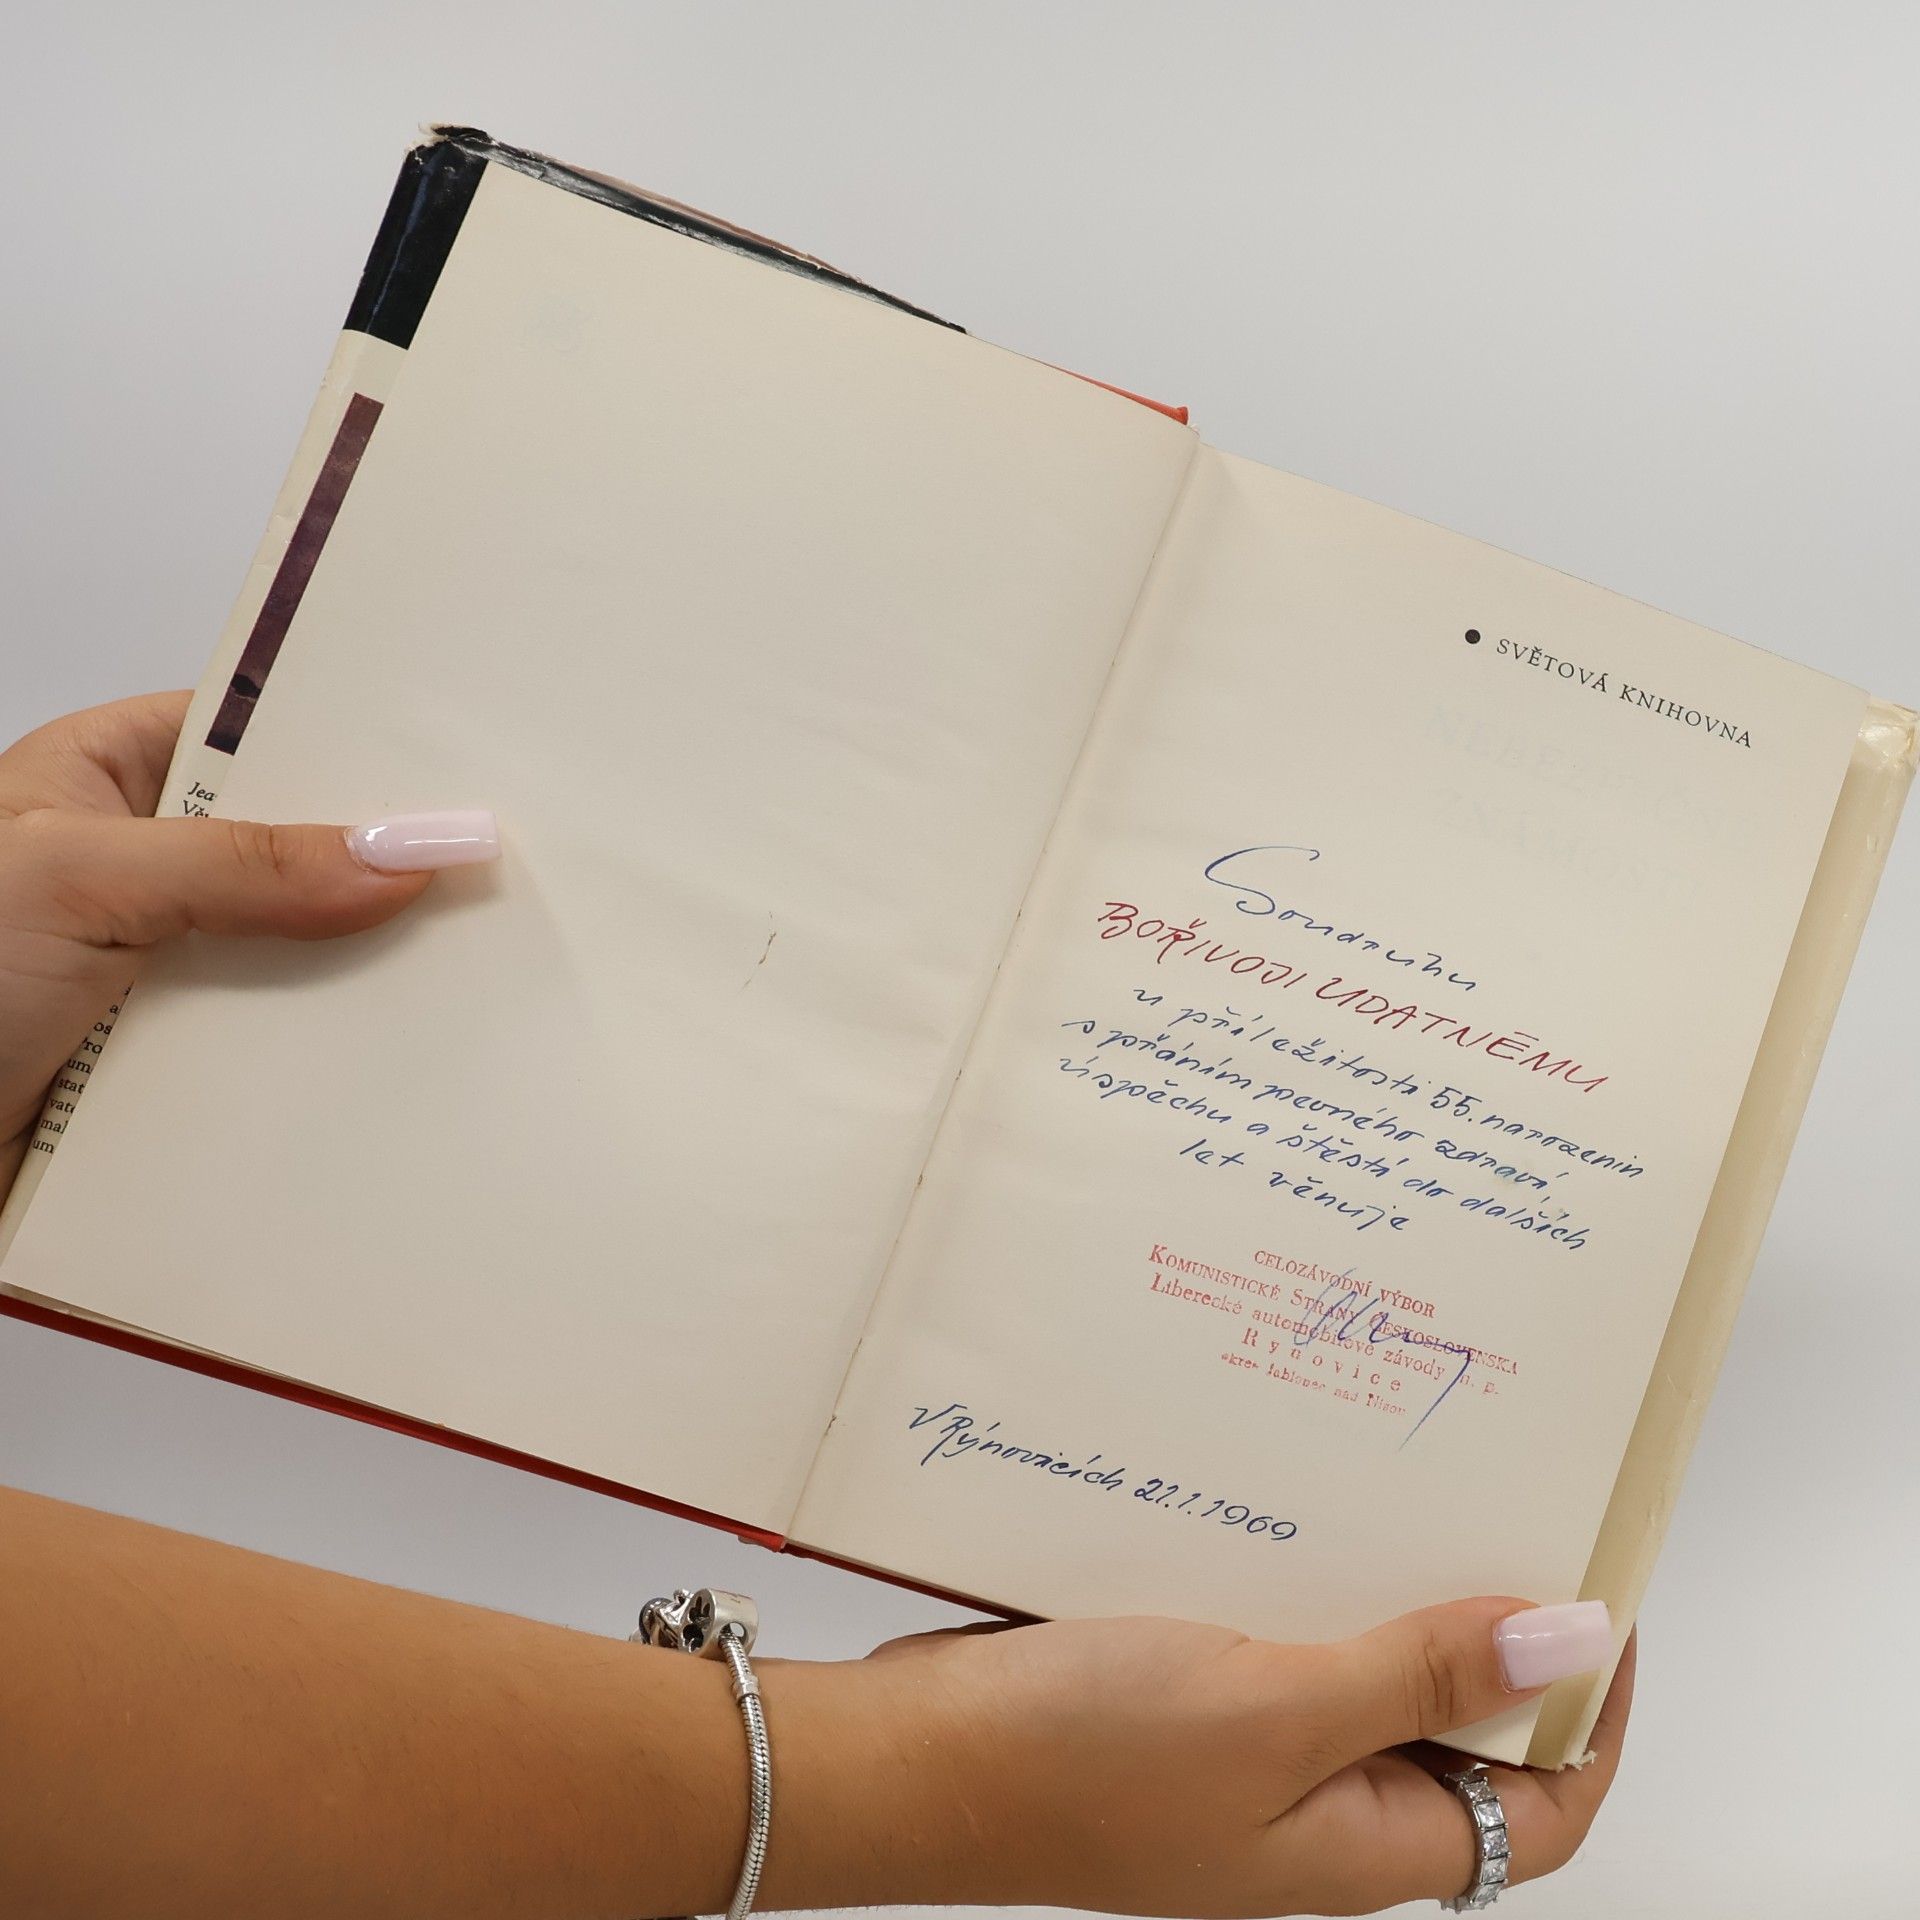 Jea
Vě
a
os
ro
um
stat
vate
mal
úm
• SVĚTOVÁ KNIHOVNA
Soudruhu
BOŘIVOJI UDATNÉMU
u příležitosti 55. narozenin
s přáním pevného zdraví,
úspěchu a štěstí do dalších
let věnuje
CELOZÁVODNÍ VÝBOR
KOMUNISTICKÉ STRANY ČESKOSLOVENSKA
Liberecké automobilové závody n. p.
Rýnovice
okres Jablonec nad Nisou
V Rýnovicích 21.1.1969